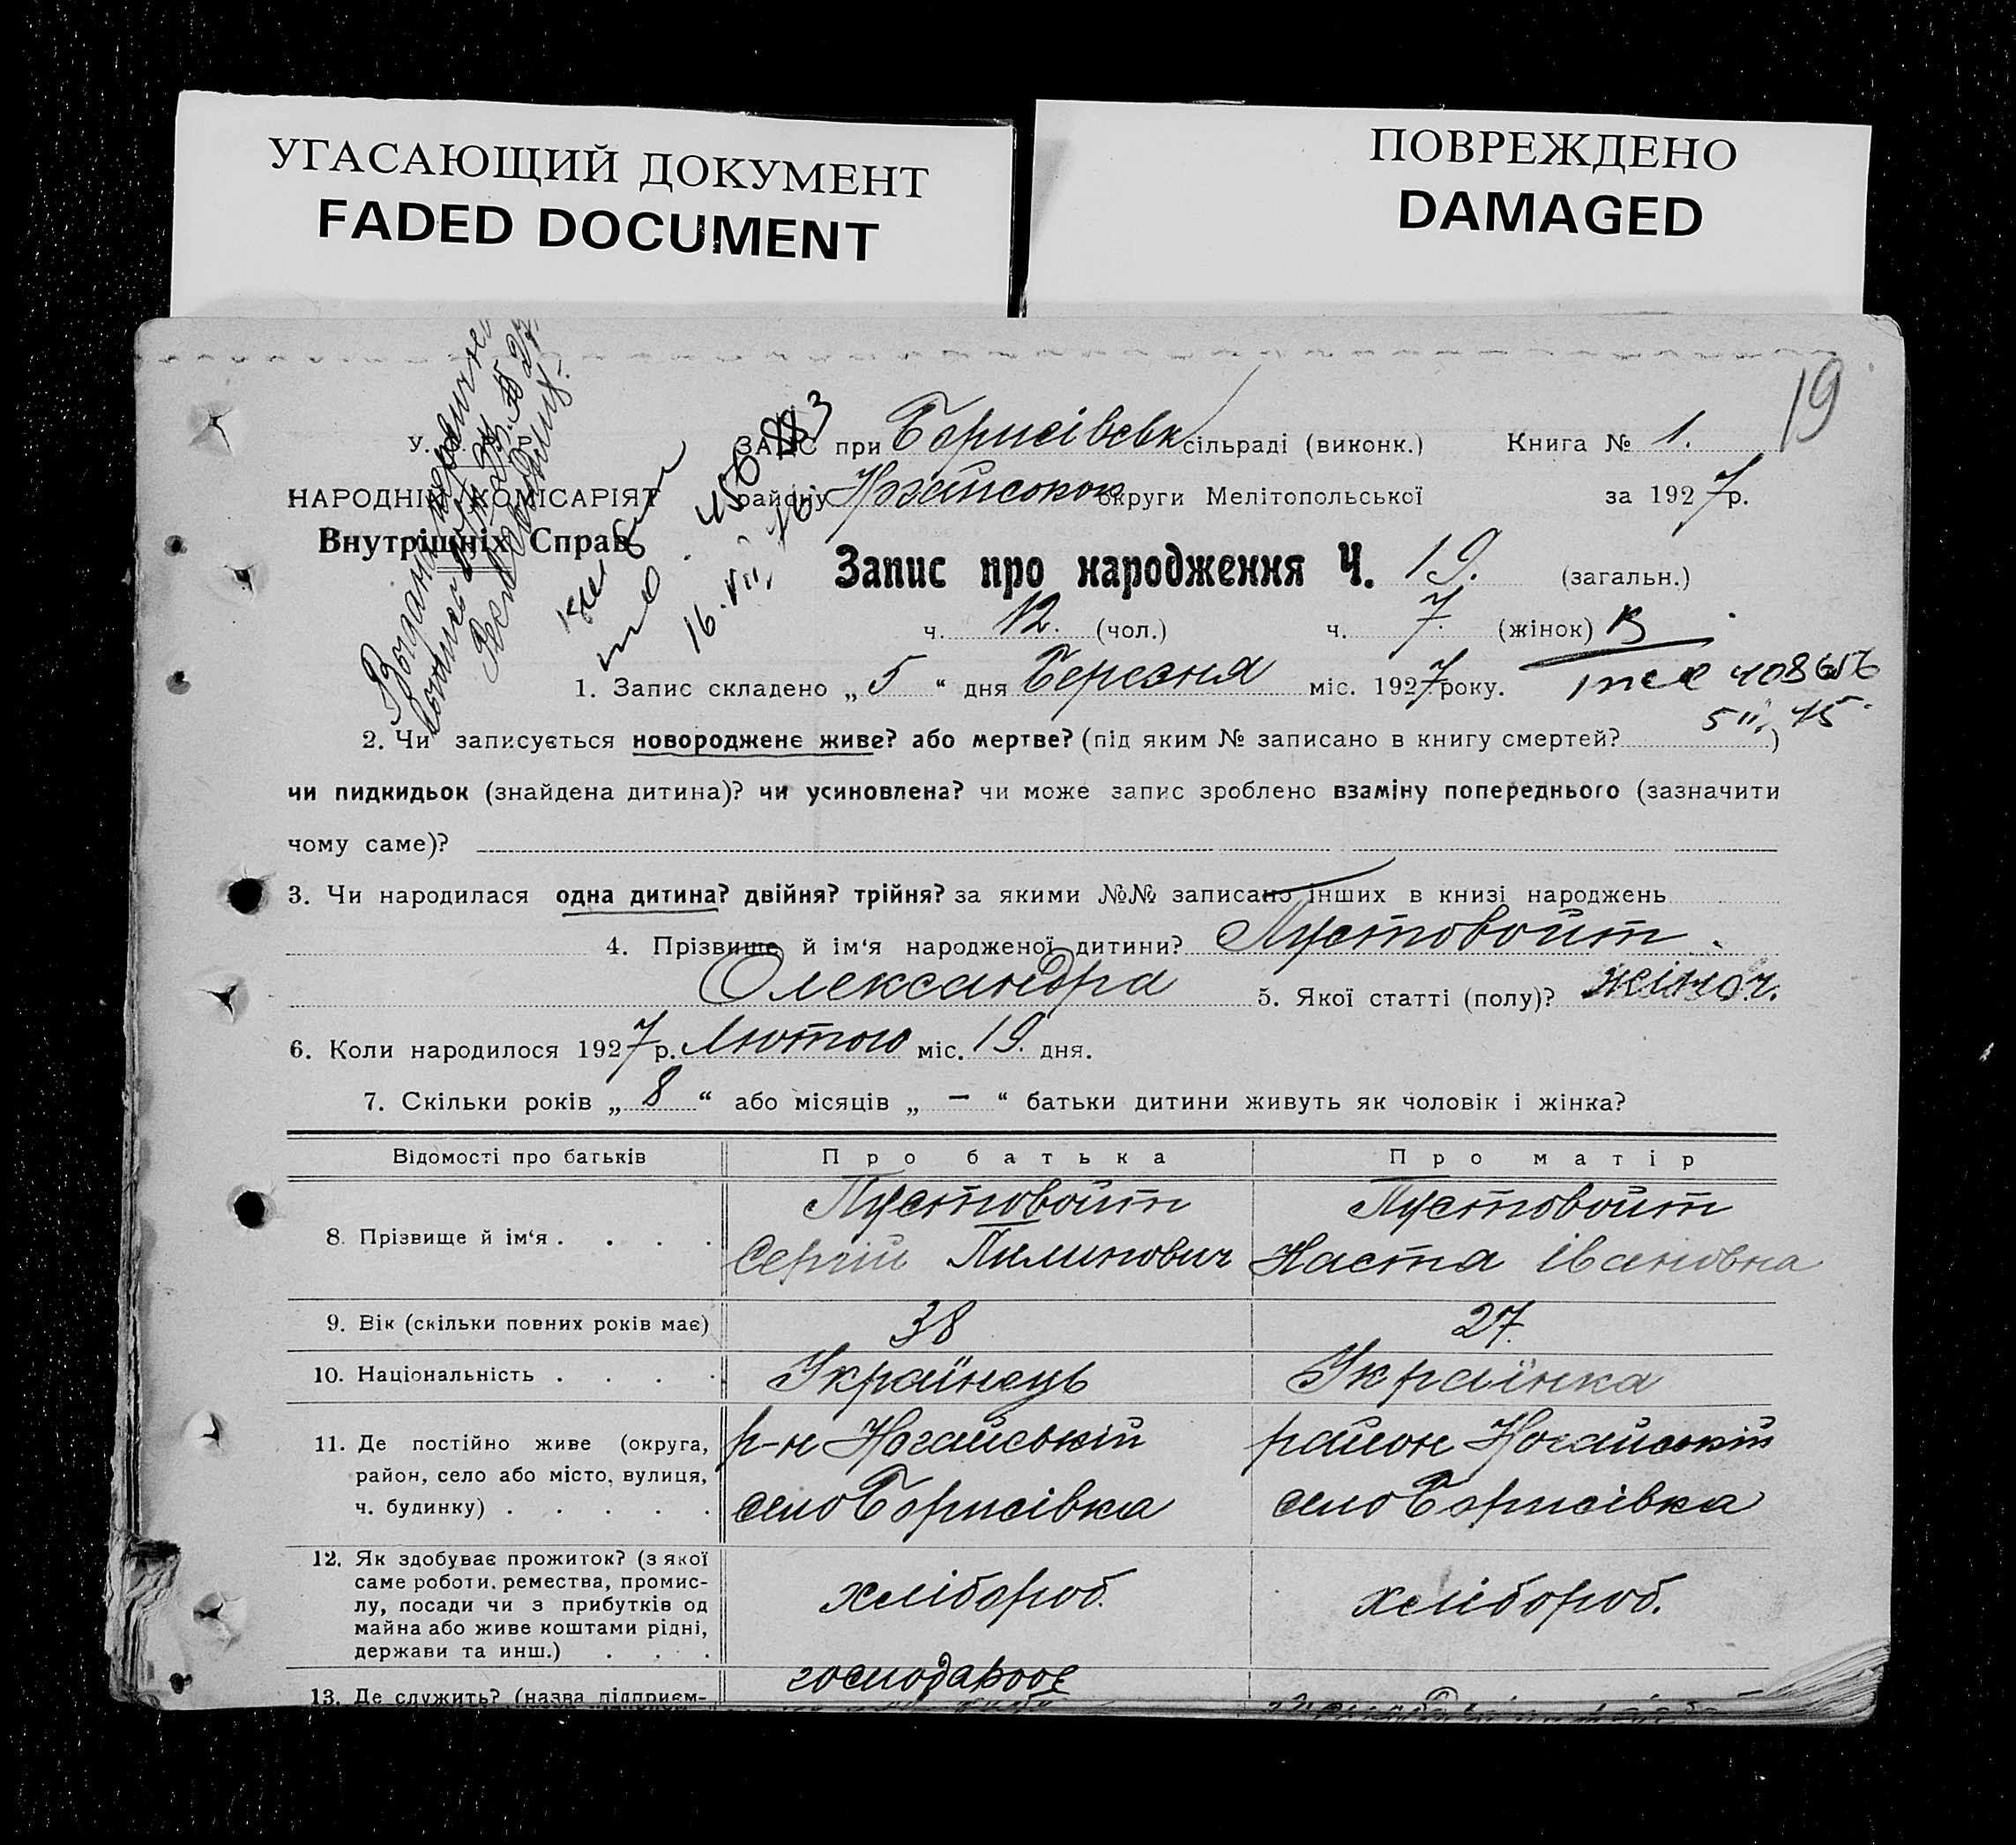 УГАСАЮЩИЙ ДОКУМЕНТ
FADED DOCUMENT
ПОВРЕЖДЕНО
DAMAGED
19
ЗАПС при Борисівськ сільраді (виконк.) Книга № 1.
НАРОДНІЙ КОМІСАРІЯТ
району Ногайської округи Мелітопольської за 1927 р.
Внутрішніх Справ
Запис про народження Ч. 19. (загальн.)
ч. 12. (чол.) ч. 7. (жінок)
16.VII.
1. Запис складено „ 5 “ дня Березня міс. 1927 року.
408656
2. Чи записується новороджене живе? або мертве? (під яким № записано в книгу смертей? )
чи пидкидьок (знайдена дитина)? чи усиновлена? чи може запис зроблено взаміну попереднього (зазначити
чому саме)?
3. Чи народилася одна дитина? двійня? трійня? за якими №№ записано інших в книзі народжень
4. Прізвище й ім‘я народженої дитини? Пустовойт
Олександра 5. Якої статті (полу)? жіноч.
6. Коли народилося 1927 р. Лютого міс. 19. дня.
7. Скільки років „ 8 “ або місяців „ — “ батьки дитини живуть як чоловік і жінка?
Відомості про батьків Про батька Про матір
8. Прізвище й ім‘я . . . . Пустовойт Пустовойт
Сергій Пилипович Наста Івановна
9. Вік (скільки повних років має) 38 27.
10. Національність . . . . Українець Українка
11. Де постійно живе (округа, р-н Ногайській район Ногайській
район, село або місто, вулиця,
ч. будинку) . . . . . село Борисівка село Борисівка
12. Як здобуває прожиток? (з якої
саме роботи, ремества, промис-
лу, посади чи з прибутків од хлібороб. хлібороб.
майна або живе коштами рідні,
держави та инш.) . . .
13. Де служить? (назва підприєм-